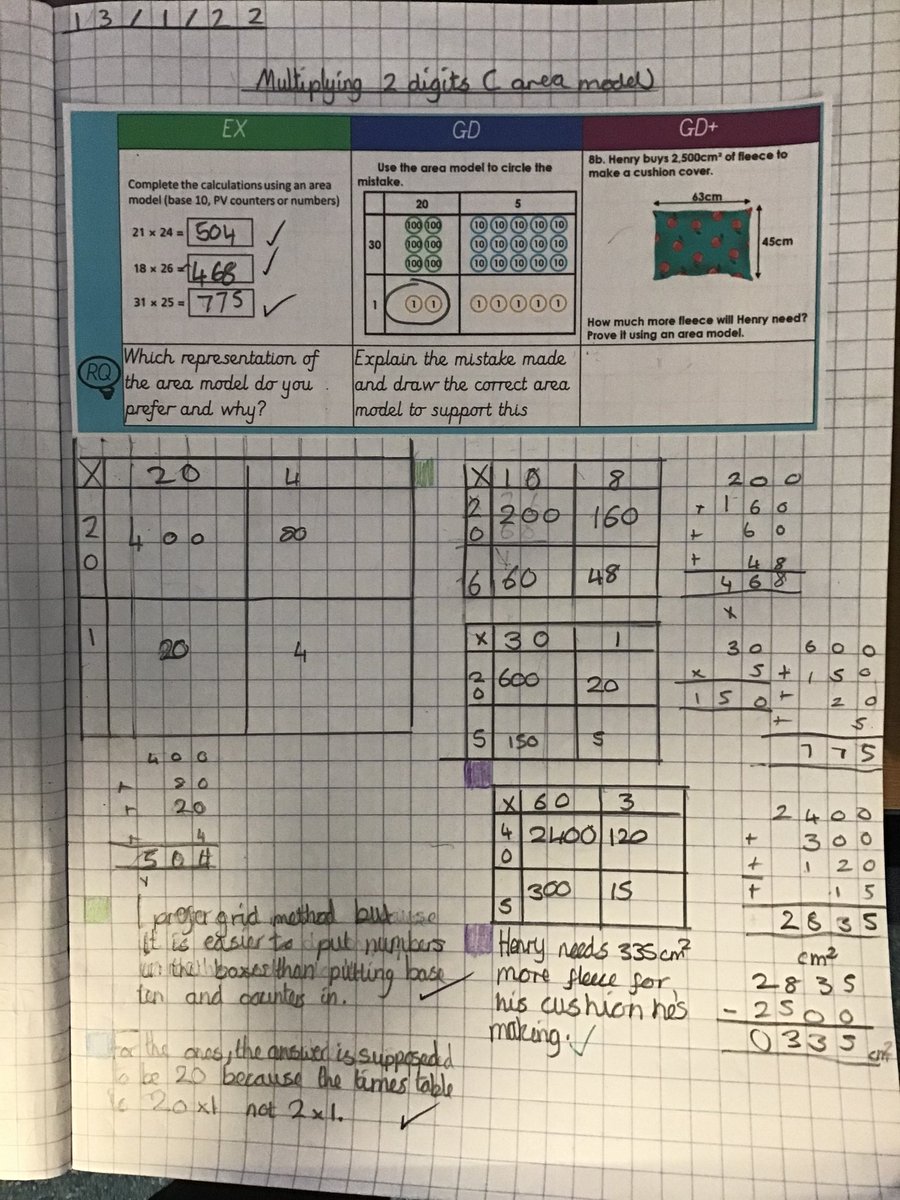 13/1/22
Multiplying 2 digits (area model)
EX
Complete the calculations using an area
model (base 10, PV counters or numbers)
21 x 24 = 504 ✓
18 x 26 = 468 ✓
31 x 25 = 775 ✓
RQ
Which representation of
the area model do you
prefer and why?
GD
Use the area model to circle the
mistake.
20 5
100 100 10 10 10 10 10
30 100 100 10 10 10 10 10
100 100 10 10 10 10 10
1 1 1 1 1 1 1 1
Explain the mistake made
and draw the correct area
model to support this
GD+
8b. Henry buys 2,500cm² of fleece to
make a cushion cover.
63cm
45cm
How much more fleece will Henry need?
Prove it using an area model.
X 20 4
20 400 80
1 20 4
400
+ 80
+ 20
+ 4
504
I prefer grid method
it is easier to put numbers
boxes than putting base
ten and counters in. ✓
For the ones, the answer is supposed
to be 20 because the times table
is 20x1 not 2x1. ✓
X 10 8
20 200 160
6 60 48
200
+ 160
+ 60
+ 48
468
X 30 1
20 600 20
5 150 5
30
x 5
150
600
+ 150
+ 20
+ 5
775
X 60 3
40 2400 120
5 300 15
2400
+ 300
+ 120
+ 15
2835
cm²
2835
- 2500
0335 cm²
Henry needs 335cm²
more fleece for
his cushion he's
making. ✓